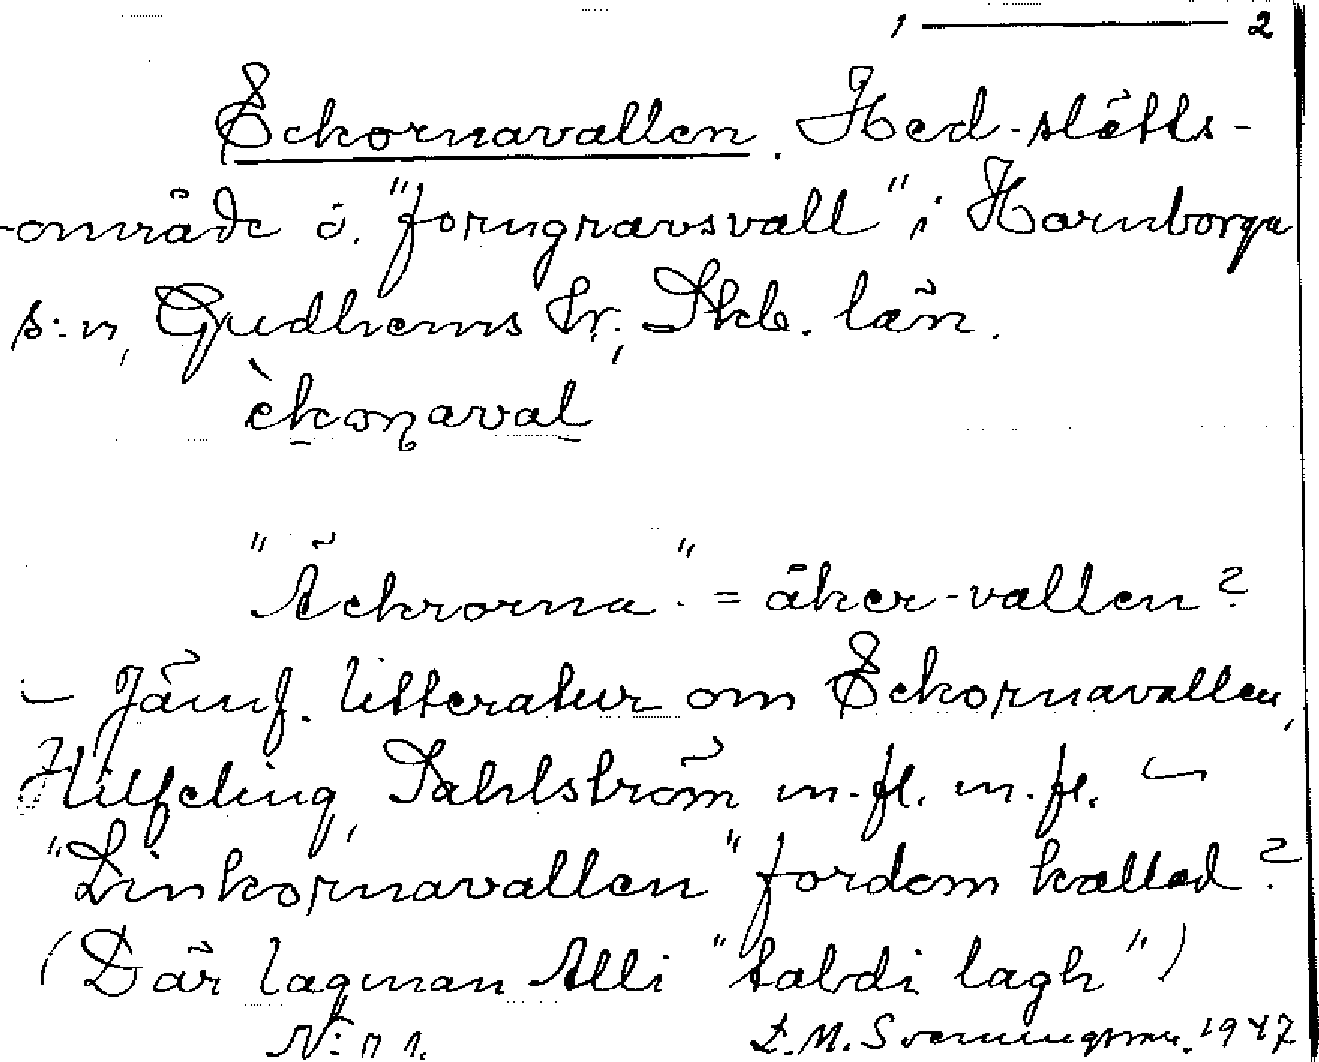 1 — 2
Eckornavallen. Hed-slätts-
-område ö. "forngravsvall" i Hornborga
s:n, Gudhems hr., Skb. län.
èkoɳaval
"Äckrorna". = åker-vallen?
– Jämf. litteratur om Eckornavallen,
Hilfeling, Dahlström m.fl. m.fl. –
"Linkornavallen" fordom kallad?
(Där lagman Alli "tabdi lagh")
N:r 1. L.M. Svenningsson. 1947